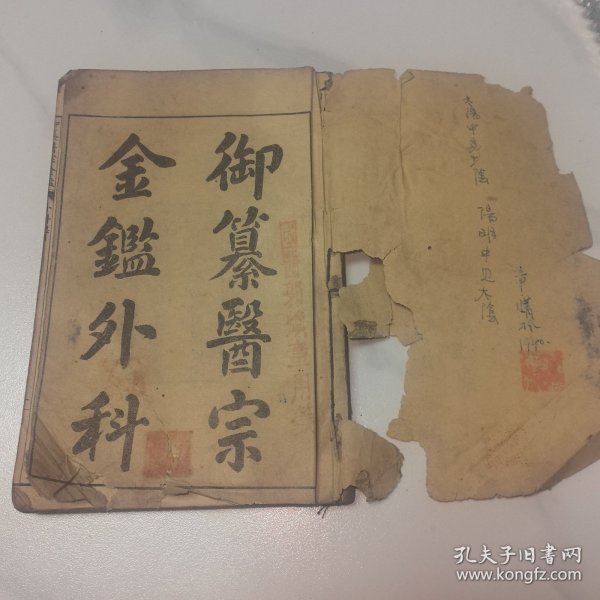 御纂醫宗
金鑑外科
太陽中見少陰 陽明中見太陰
1940
孔夫子旧书网
www.kongfz.com